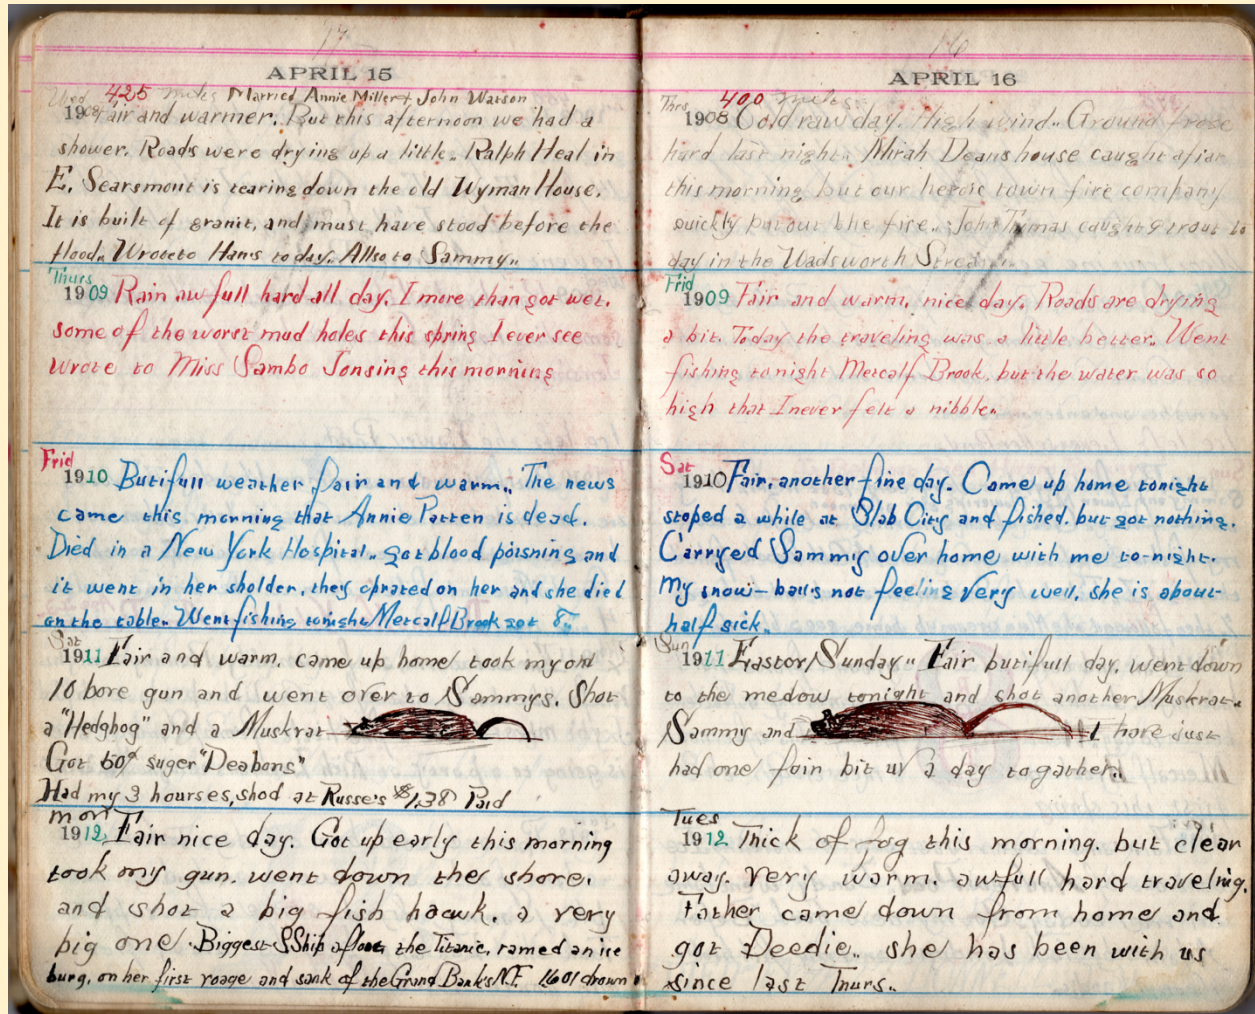 17
APRIL 15
Wed 425 miles Married Annie Miller & John Watson
1908 Fair and warmer. But this afternoon we had a
shower. Roads were drying up a little. Ralph Heal in
E. Searsmont is tearing down the old Wyman House.
It is built of granit, and must have stood before the
flood. Wrote to Hans today. Allso to Sammy.
Thurs
1909 Rain awfull hard all day. I more than got wet.
some of the worst mud holes this spring I ever see
wrote to Miss Sambo Jonsing this morning
Frid
1910 Butifull weather fair and warm. The news
came this morning that Annie Patten is dead.
Died in a New York Hospital. got blood poisning and
it went in her sholder, they oprated on her and she died
on the table. Went fishing tonight Metcalf Brook got 8
Sat
1911 Fair and warm. came up home took my old
10 bore gun and went over to Sammys. Shot
a "Hedghog" and a Muskrat
Got 60¢ suger "Deabons"
Had my 3 hourses, shod at Russe's $1.38 Paid
mon
1912 Fair nice day. Got up early this morning
took my gun. went down the shore.
and shot a big fish hawk. a very
big one. Biggest SShip afloat the Titanic, ramed an ice
burg, on her first voage and sank of the Grand Banks N.F. 1601 drown
16
APRIL 16
Thes 400 miles
1908 Cold raw day. High wind. Ground froze
hard last night. Mirah Deans house caught afiar
this morning but our heroic town fire company
quickly put out the fire. John Thmas caught 9 trout to
day in the Wadsworth Stream
Frid
1909 Fair and warm, nice day. Roads are drying
a bit. Today the traveling was a little better. Went
fishing tonight Metcalf Brook, but the water was so
high that I never felt a nibble.
Sat
1910 Fair, another fine day. Came up home tonight
stoped a while at Slab City and fished, but got nothing.
Carryed Sammy over home with me to-night.
My snow-ball's not feeling very well, she is about
half sick.
Sun
1911 Eastor Sunday" Fair butifull day. went down
to the medow tonight and shot another Muskrat.
Sammy and I have just
had one foin bit uv a day togather.
Tues
1912 Thick of fog this morning. but clear
away. very warm. awfull hard traveling.
Father came down from home and
got Deedie. she has been with us
since last Thurs.